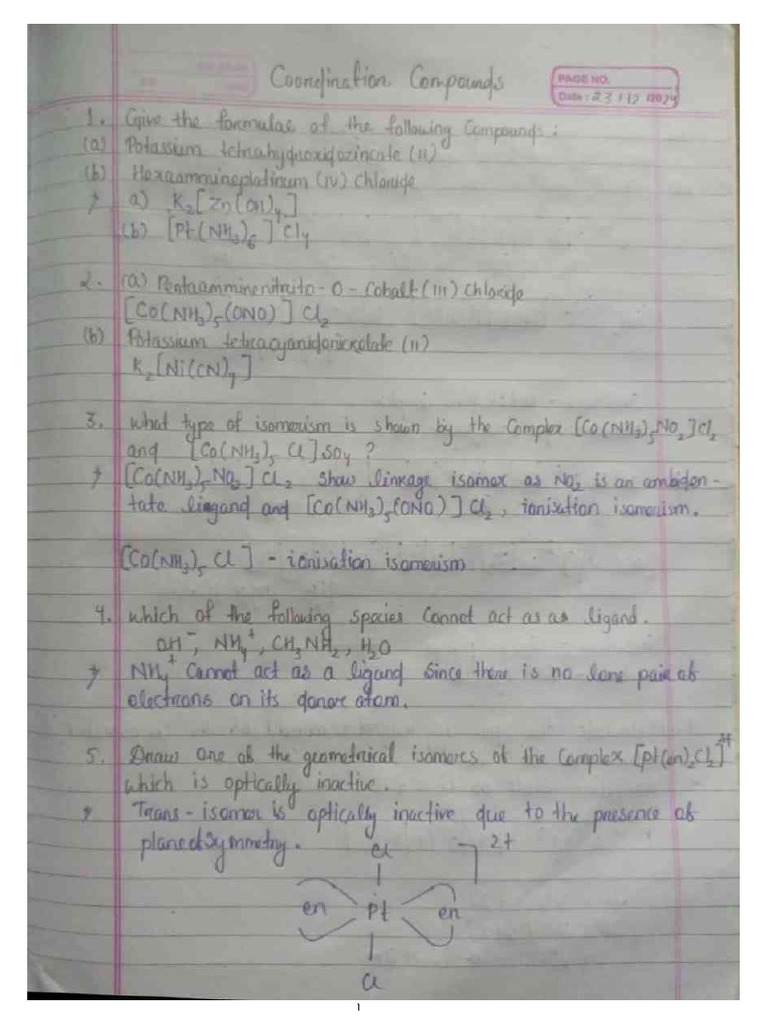 Coordination Compounds
PAGE NO.
Date: 23/12/2024
1. Give the formulae of the following Compounds:
(a) Potassium tetrahydroxidozincate (II)
(b) Hexaammineplatinum (IV) Chloride
→ a) K₂[Zn(OH)₄]
(b) [Pt(NH₃)₆]Cl₄
2. (a) Pentaamminenitrito-O-Cobalt(III) Chloride
[Co(NH₃)₅(ONO)]Cl₂
(b) Potassium tetracyanidonickelate (II)
K₂[Ni(CN)₄]
3. What type of isomerism is shown by the Complex [Co(NH₃)₅NO₂]Cl₂
and [Co(NH₃)₅ Cl]SO₄ ?
→ [Co(NH₃)₅NO₂]Cl₂ show linkage isomer as NO₂ is an ambiden-
tate liegand and [Co(NH₃)₅(ONO)]Cl₂, ionisation isomerism.
[Co(NH₃)₅ Cl] - ionisation isomerism
4. Which of the following species Cannot act as as ligand.
OH⁻, NH₄⁺, CH₃NH₂, H₂O
→ NH₄⁺ Cannot act as a ligand Since there is no lone pair of
electrons on its donor atom.
5. Draw one of the geometrical isomers of the Complex [Pt(en)₂Cl₂]²⁺
which is optically inactive.
→ Trans-isomer is optically inactive due to the presence of
plane of Symmetry.
Cl
2+
en Pt en
Cl
1